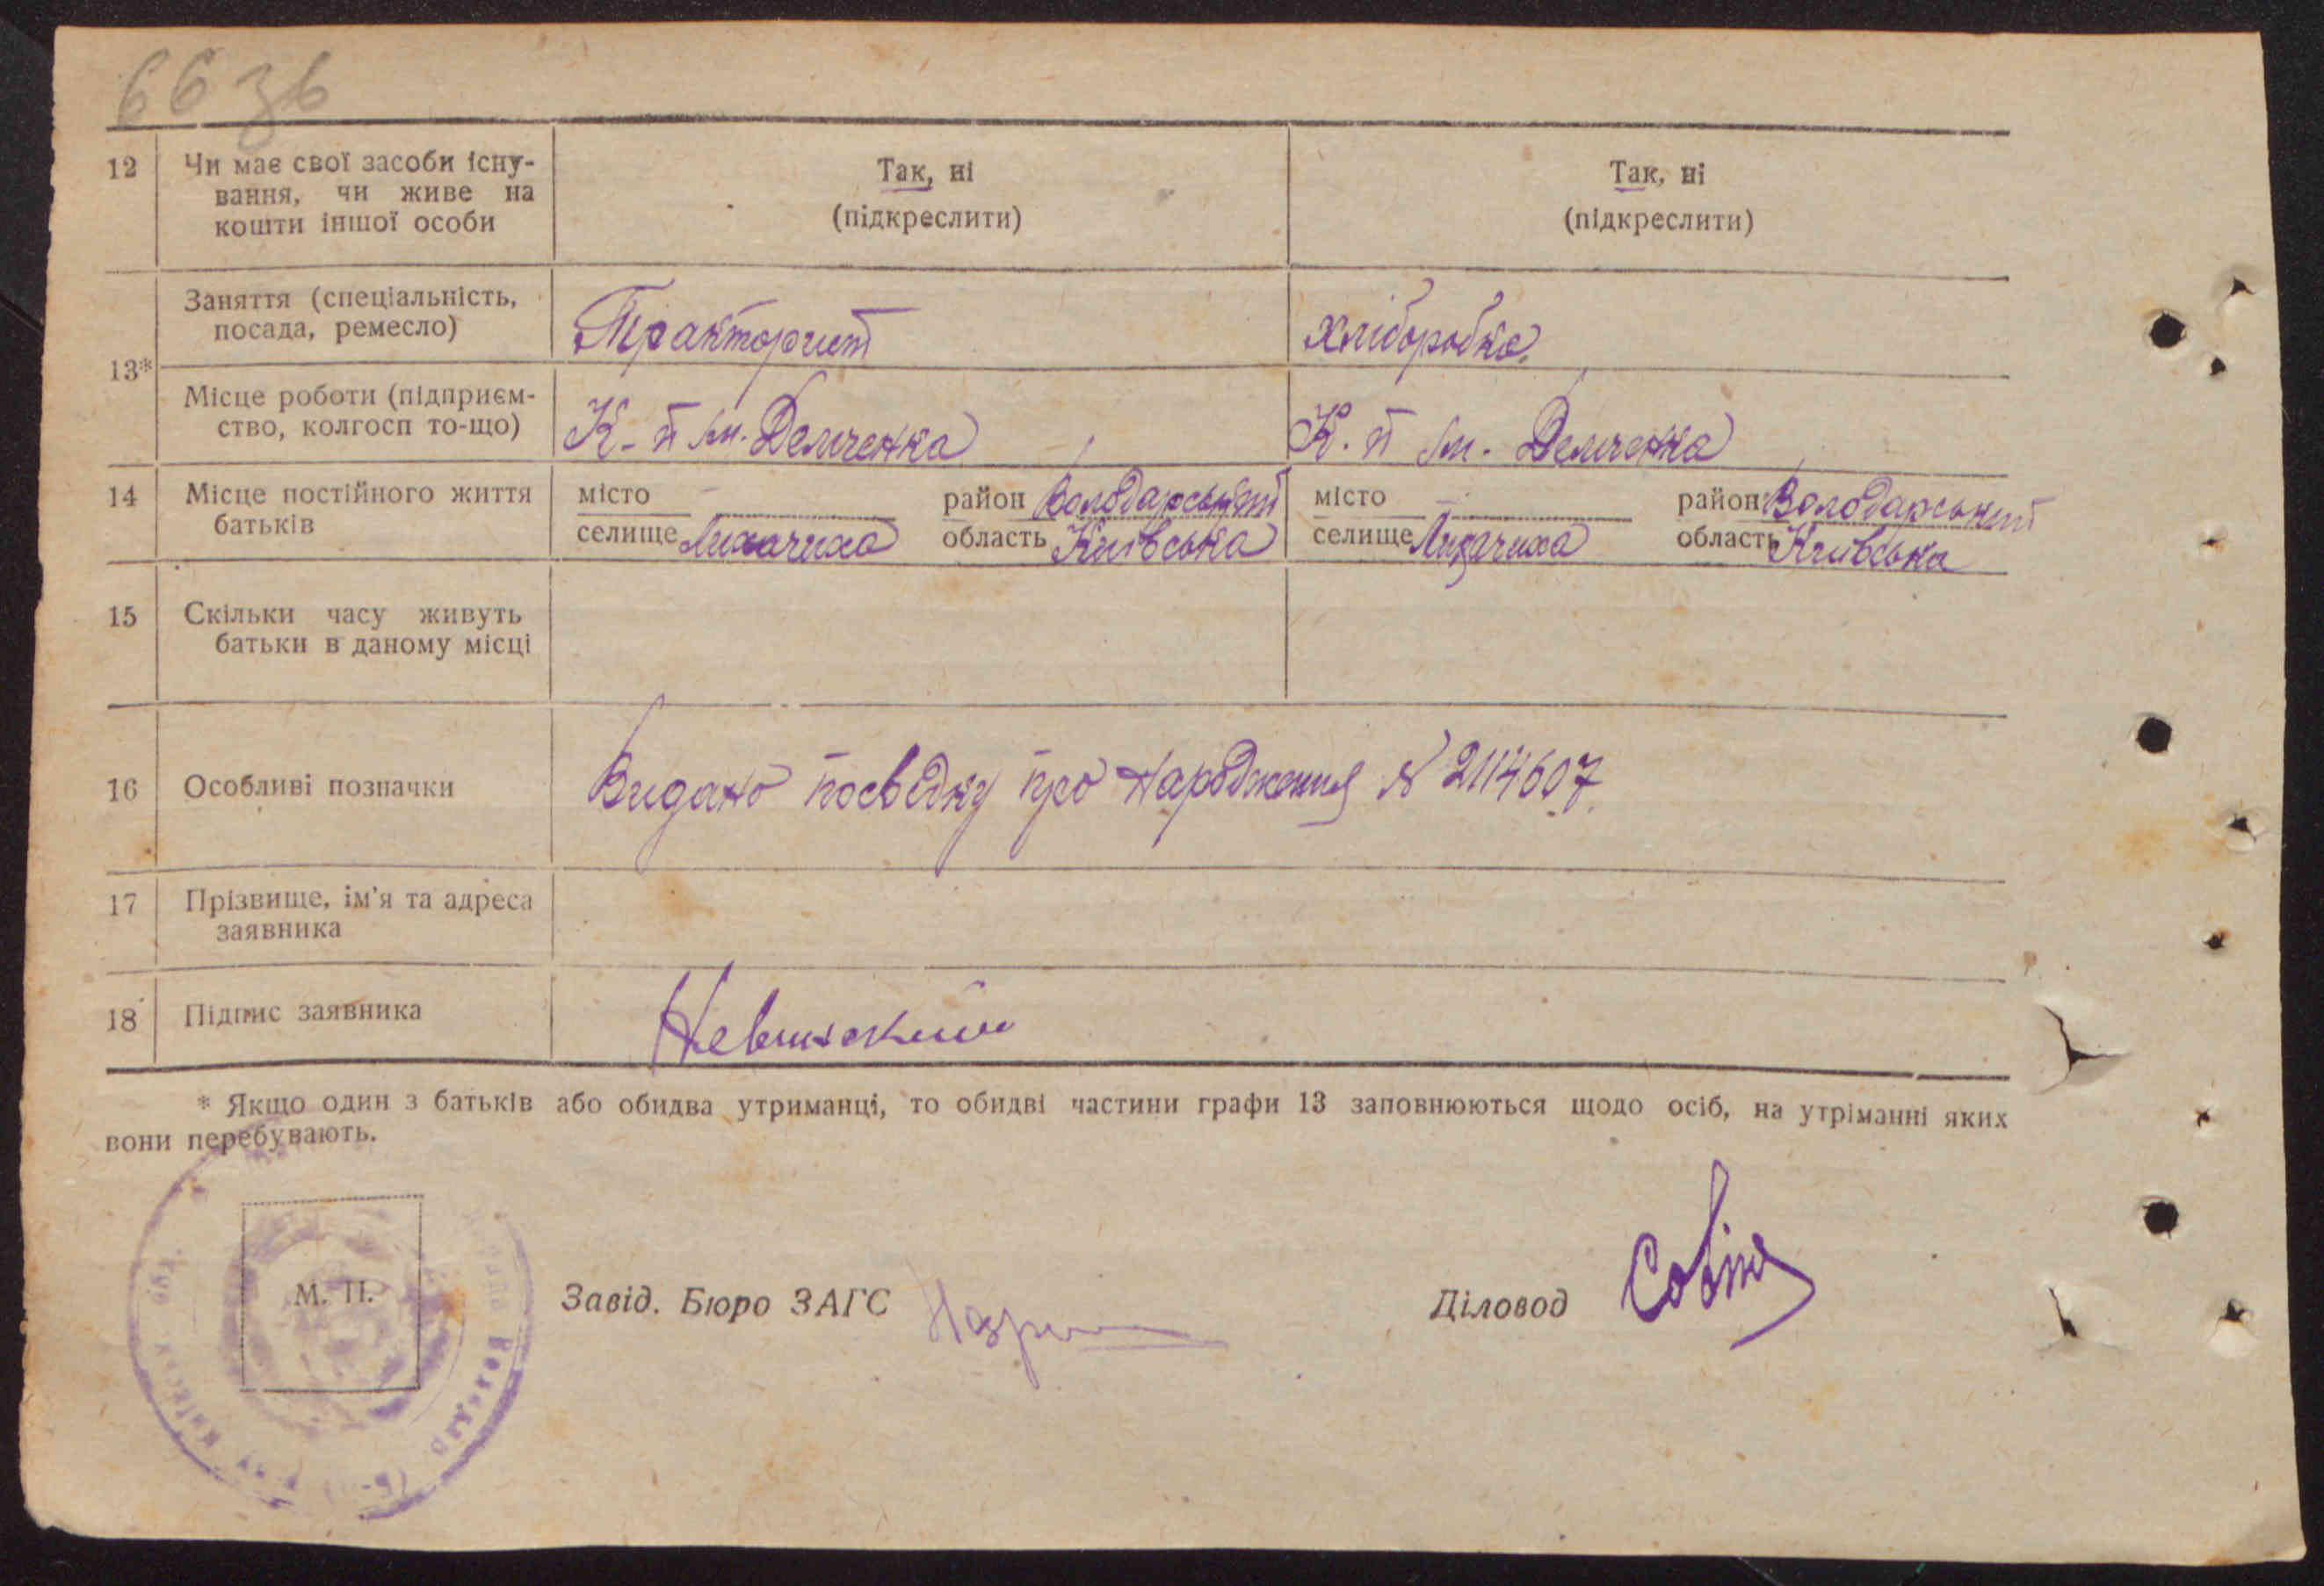 66 зв
12 Чи має свої засоби існу- Так, ні Так, ні
вання, чи живе на (підкреслити) (підкреслити)
кошти іншої особи
Заняття (спеціальність,
посада, ремесло) Тракторист хліборобка
13*
Місце роботи (підприєм-
ство, колгосп то-що) К-п ім. Демченка К. п ім. Демченка
14 Місце постійного життя місто — район Володарський місто — район Володарський
батьків селище Лихачиха область Київська селище Лихачиха область Київська
15 Скільки часу живуть
батьки в даному місці
16 Особливі позначки Видано посвідку про народження № 2114607.
17 Прізвище, ім'я та адреса
заявника
18 Підпис заявника Невинский
* Якщо один з батьків або обидва утриманці, то обидві частини графи 13 заповнюються щодо осіб, на утріманні яких
вони перебувають.
М. П. Завід. Бюро ЗАГС Діловод